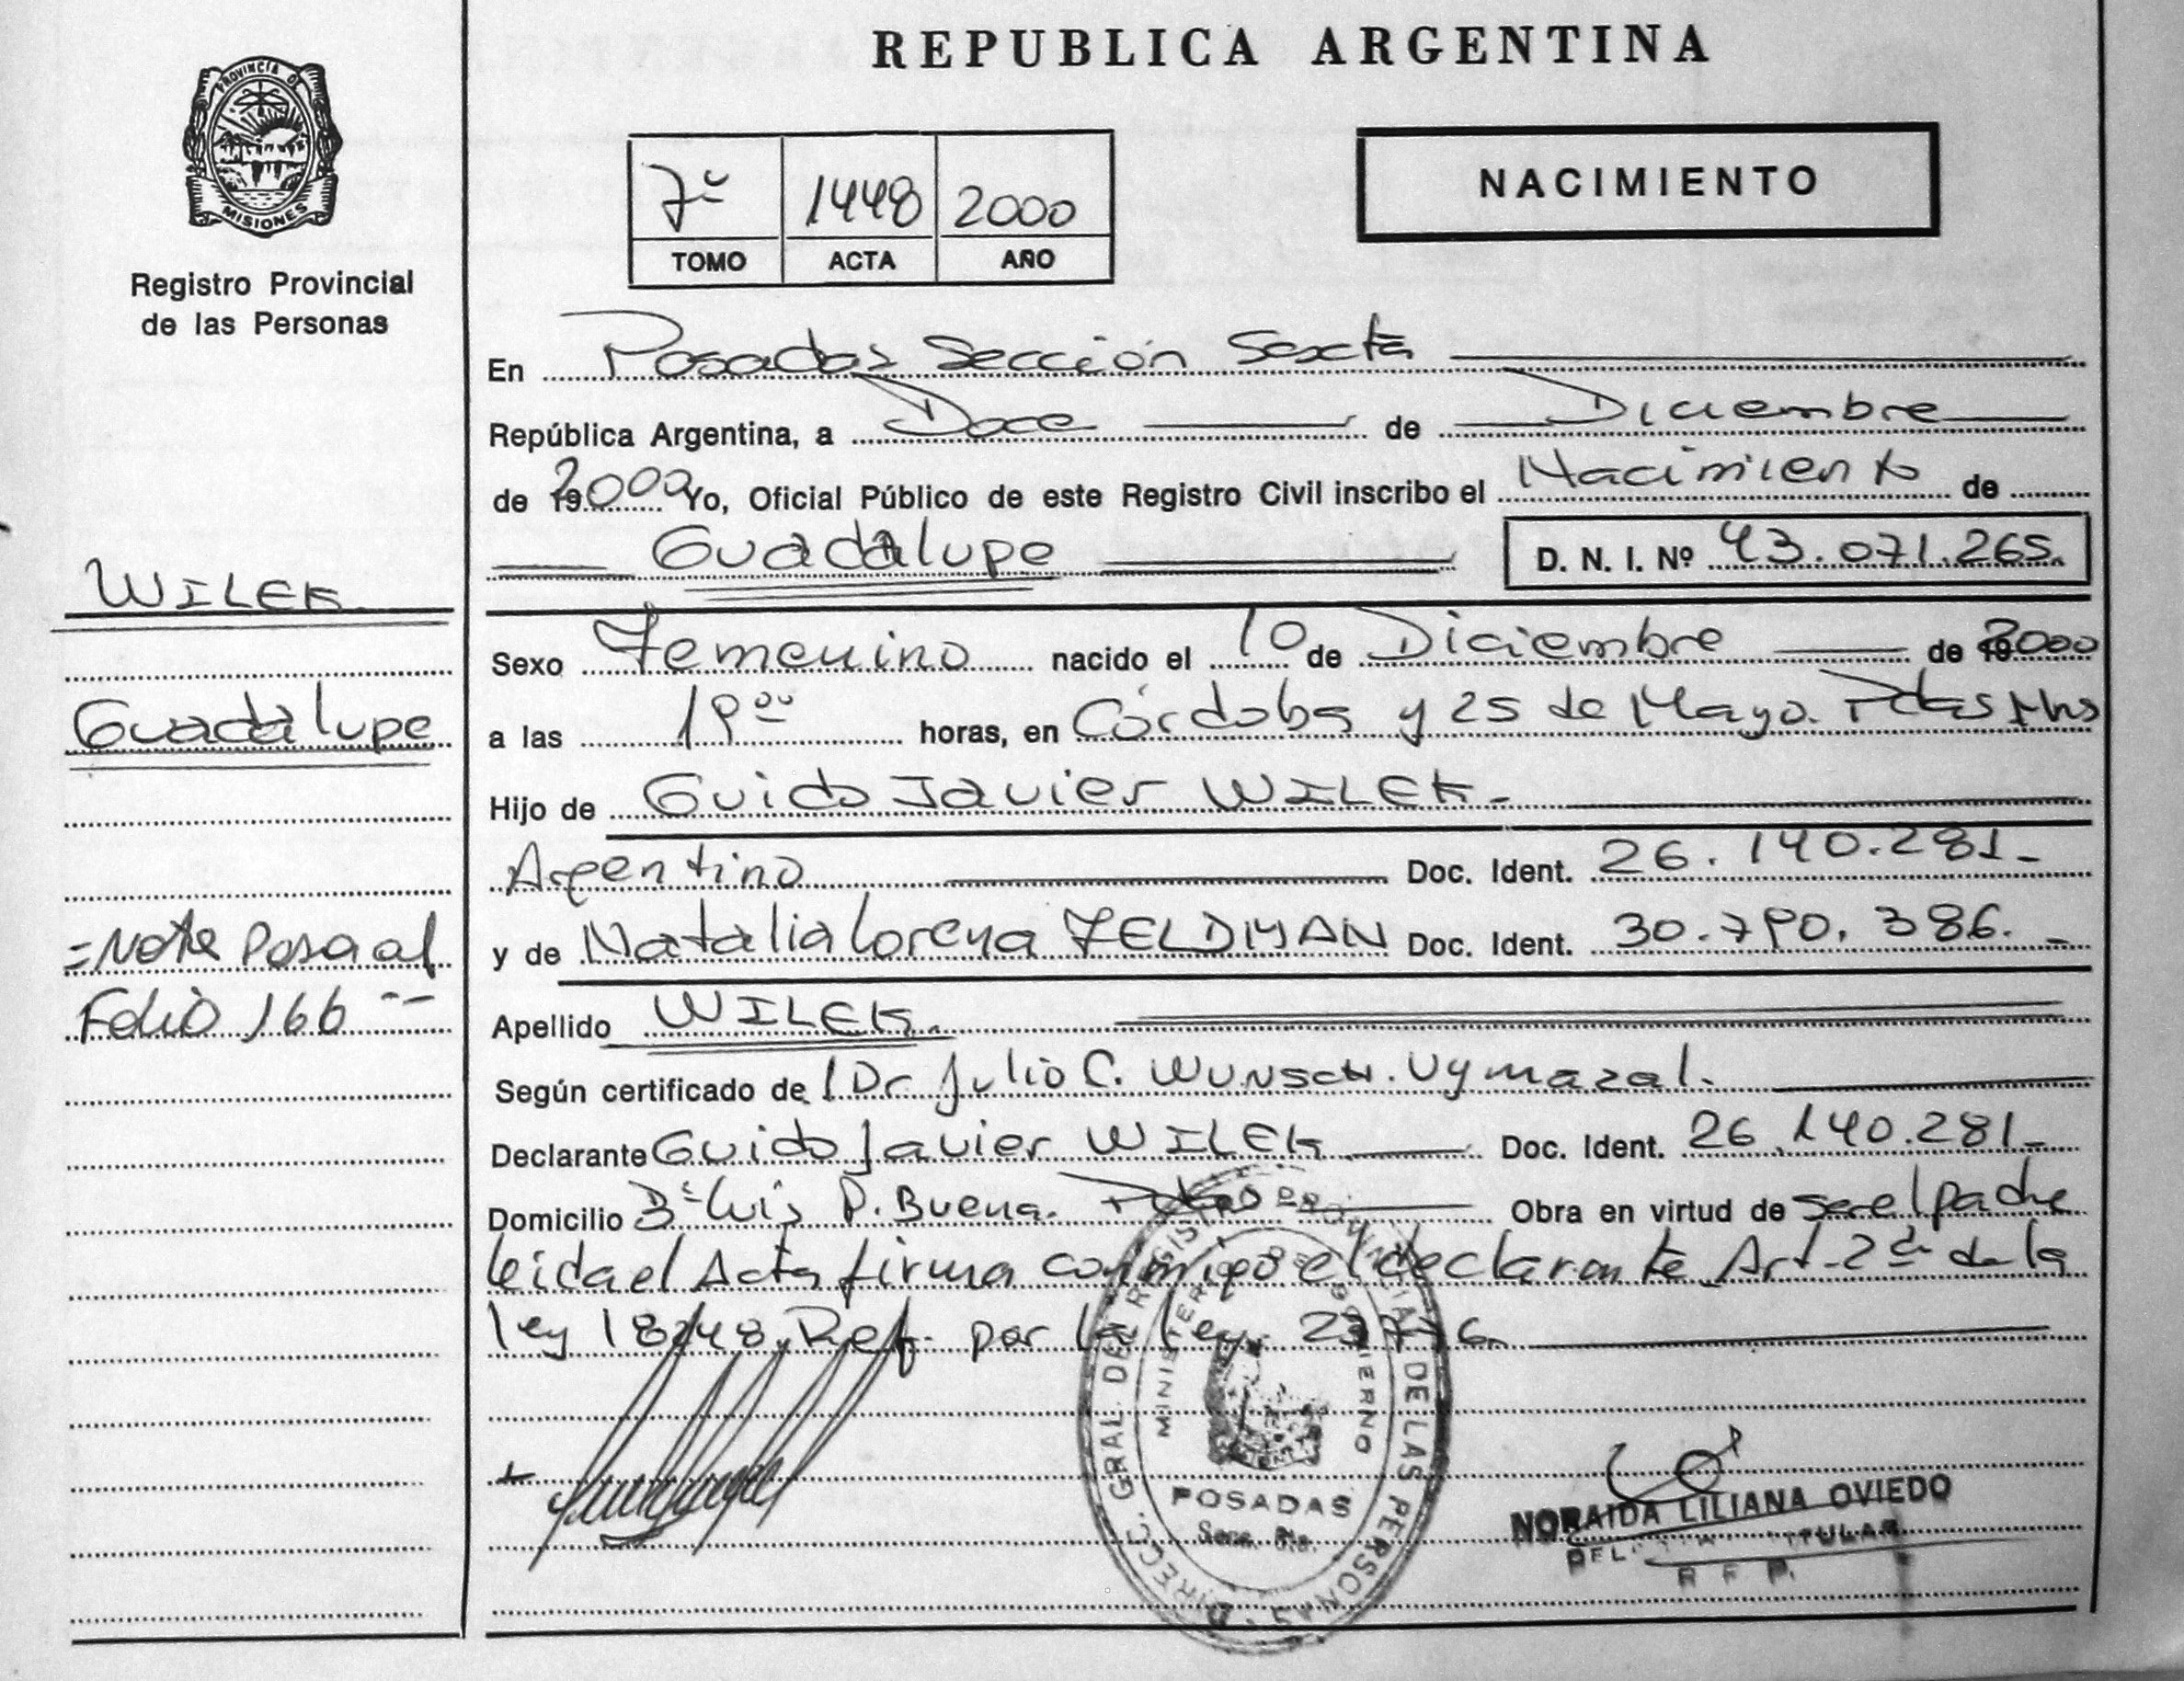 REPUBLICA ARGENTINA
PROVINCIA DE
MISIONES
Registro Provincial
de las Personas
7º 1448 2000
TOMO ACTA AÑO
NACIMIENTO
En Posadas Sección Sexta
República Argentina, a Doce de Diciembre
de 2000 Yo, Oficial Público de este Registro Civil inscribo el Nacimiento de
Guadalupe D. N. I. Nº 43.071.265.
Sexo Femenino nacido el 10 de Diciembre de 2000
a las 19⁰⁰ horas, en Córdoba y 25 de Mayo. Pdas Mns
Hijo de Guido Javier WILEK.
Argentino Doc. Ident. 26.140.281-
y de Natalia Lorena FELDMAN Doc. Ident. 30.790.386.-
Apellido WILEK.
Según certificado de Dr. Julio C. WUNSCH. Vymazal.
Declarante Guido Javier WILEK Doc. Ident. 26.140.281-
Domicilio Bº Luis P. Buena. Pdas Obra en virtud de ser el padre
leida el Acta firma conmigo el declarante Art. 2º de la
ley 18248. Ref. por la ley. 23776.
WILEK
Guadalupe
=Nota Pasa al
Folio 166 --
DIRECC. GRAL. DEL REGISTRO PROVINCIAL DE LAS PERSONAS
MINISTERIO DE GOBIERNO
POSADAS
Secc. 6ta.
NORAIDA LILIANA OVIEDO
TITULAR
R P P.